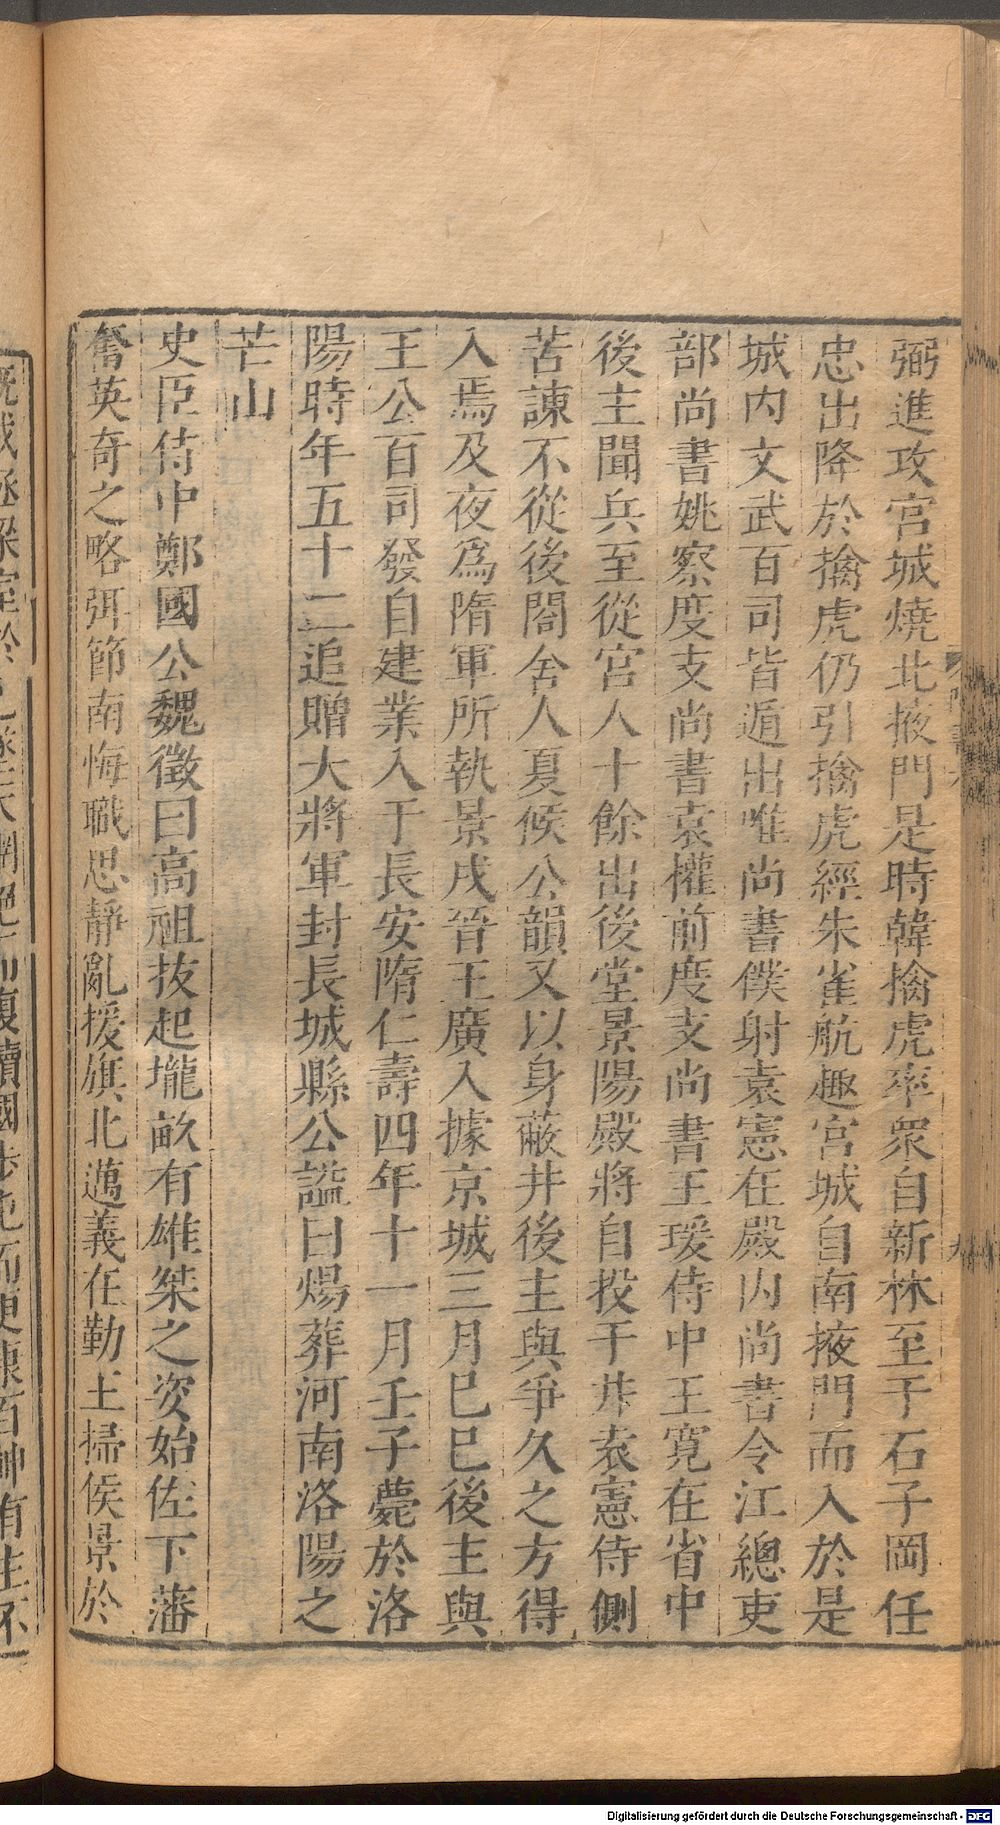 弼進攻宮城燒北掖門是時韓擒虎率衆自新林至于石子岡任
忠出降於擒虎仍引擒虎經朱雀航趣宮城自南掖門而入於是
城內文武百司皆遁出唯尚書僕射袁憲在殿內尚書令江總吏
部尚書姚察度支尚書袁權前度支尚書王瑗侍中王寬在省中
後主聞兵至從宮人十餘出後堂景陽殿將自投于井袁憲侍側
苦諫不從後閤舍人夏候公韻又以身蔽井後主與爭久之方得
入焉及夜爲隋軍所執景戌晉王廣入據京城三月己巳後主與
王公百司發自建業入于長安隋仁壽四年十一月壬子薨於洛
陽時年五十二追贈大將軍封長城縣公謚曰煬葬河南洛陽之
芒山
史臣侍中鄭國公魏徵曰高祖拔起壠畝有雄桀之姿始佐下藩
奮英奇之略弭節南悔職思靜亂援旗北邁義在勤王掃侯景於
Digitalisierung gefördert durch die Deutsche Forschungsgemeinschaft - DFG